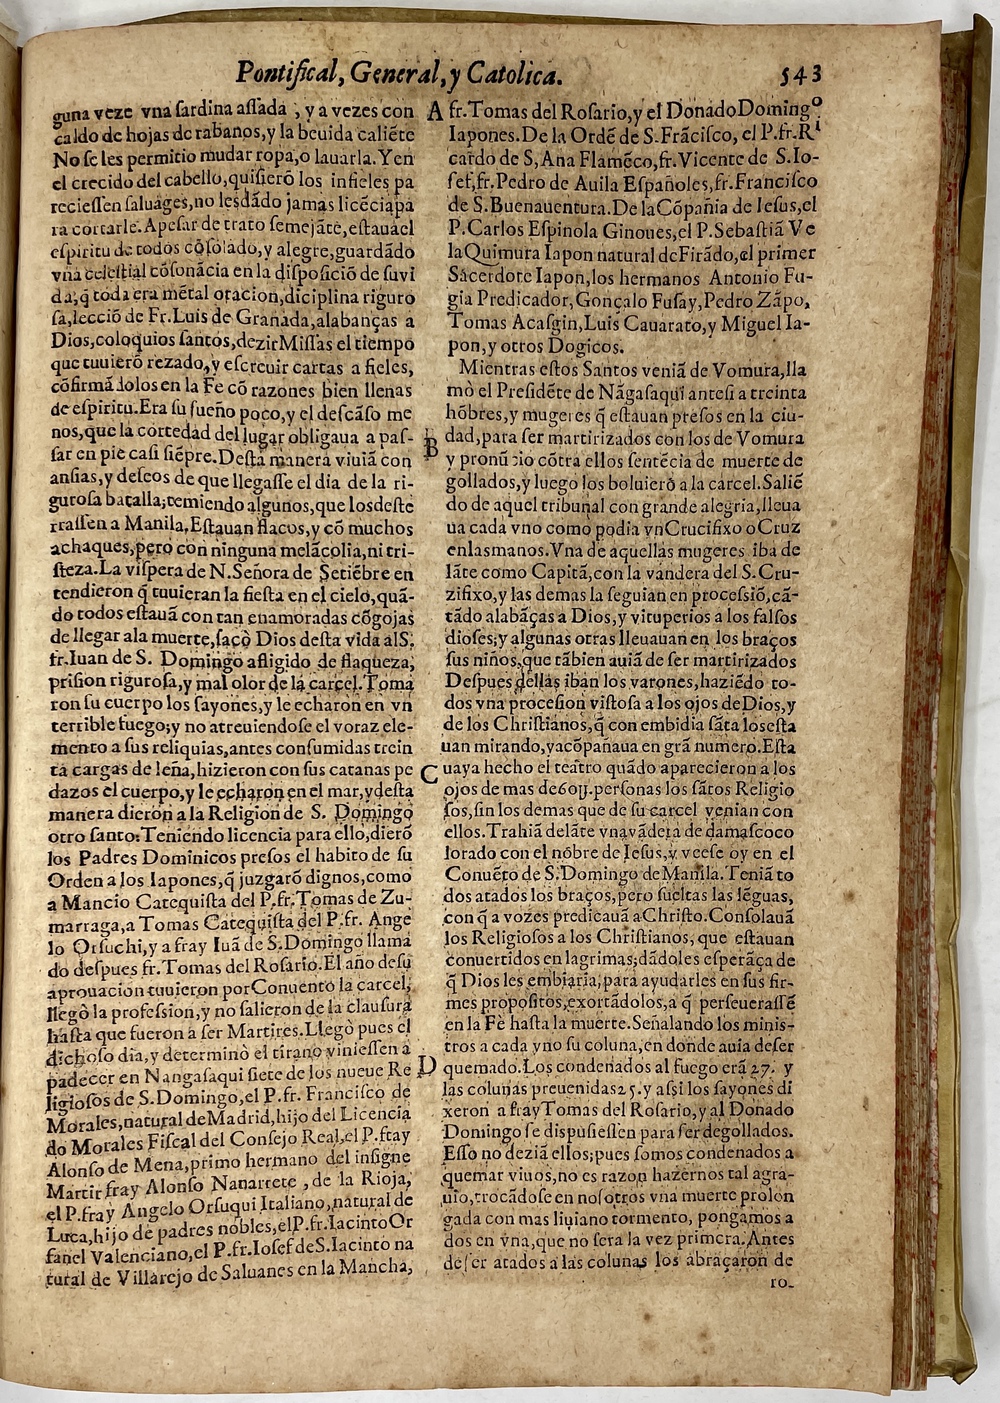 Pontifical, General, y Catolica. 543
guna veze vna sardina assada, y a vezes con
caldo de hojas de rabanos, y la beuida caliẽte
No se les permitio mudar ropa, o lauarla. Y en
el crecido del cabello, quisierõ los infieles pa
reciessen saluages, no lesdãdo jamas licẽciapa
ra cortarle. Apesar de trato semejãte, estauael
espiritu de todos cõsolado, y alegre, guardãdo
vna celestial cõsonãcia en la disposiciõ de suvi
da, q̃ toda era mẽtal oracion, diciplina riguro
sa, lecciõ de Fr. Luis de Granada, alabanças a
Dios, coloquios santos, dezir Missas el tiempo
que tuuierõ rezado, y escreuir cartas a fieles,
cõfirmãdolos en la Fe cõ razones bien llenas
de espiritu. Era su sueño poco, y el descãso me
nos, que la cortedad del lugar obligaua a pas-
sar en pie casi siẽpre. Desta manera viuiã con
ansias, y deseos de que llegasse el dia de la ri-
gurosa batalla; temiendo algunos, que losdeste
rrassen a Manila. Estauan flacos, y cõ muchos
achaques, pero con ninguna melãcolia, ni tri-
steza. La vispera de N. Señora de Setiẽbre en
tendieron q̃ tuuieran la fiesta en el cielo, quã-
do todos estauã con tan enamoradas cõgojas
de llegar ala muerte, sacò Dios desta vida alS.
fr. Iuan de S. Domingo afligido de flaqueza,
prision rigurosa, y mal olor de la carcel. Toma
ron su cuerpo los sayones, y le echaron en vn
terrible fuego; y no atreuiendose el voraz ele-
mento a sus reliquias, antes consumidas trein
ta cargas de leña, hizieron con sus catanas pe
dazos el cuerpo, y le echaron en el mar, ydesta
manera dieron a la Religion de S. Domingo
otro santo: Teniendo licencia para ello, dierõ
los Padres Dominicos presos el habito de su
Orden a los Iapones, q̃ juzgarõ dignos, como
a Mancio Catequista del P. fr. Tomas de Zu-
marraga, a Tomas Catequista del P. fr. Ange
lo Orsuchi, y a fray Iuã de S. Domingo llama
do despues fr. Tomas del Rosario. El año desu
aprouacion tuuieron por Conuento la carcel;
llegò la profession, y no salieron de la clausura
hasta que fueron a ser Martires. Llegò pues el
dichoso dia, y determinò el tirano viniessen a
padecer en Nangasaqui siete de los nueue Re
ligiosos de S. Domingo, el P. fr. Francisco de
Morales, natural de Madrid, hijo del Licencia
do Morales Fiscal del Consejo Real, el P. fray
Alonso de Mena, primo hermano del insigne
Martir fray Alonso Nanarrete, de la Rioja,
el P. fray Angelo Orsuqui Italiano, natural de
Luca, hijo de padres nobles, el P. fr. Iacinto Or
fanel Valenciano, el P. fr. Iosef de S. Iacinto na
tural de Villarejo de Saluanes en la Mancha,
A fr. Tomas del Rosario, y el Donado Domingo
Iapones. De la Ordẽ de S. Frãcisco, el P. fr. Ri
cardo de S, Ana Flamẽco, fr. Vicente de S. Io-
sef, fr. Pedro de Auila Españoles, fr. Francisco
de S. Buenauentura. De la Cõpañia de Iesus, el
P. Carlos Espinola Ginoues, el P. Sebastiã Ve
laQuimura Iapon natural de Firãdo, el primer
Sacerdote Iapon, los hermanos Antonio Fu-
gia Predicador, Gonçalo Fusay, Pedro Zãpo,
Tomas Acasgin, Luis Cauarato, y Miguel Ia-
pon, y otros Dogicos.
Mientras estos Santos veniã de Vomura, lla
mò el Presidẽte de Nãgasaqui antesi a treinta
hõbres, y mugeres q̃ estauan presos en la ciu-
B dad, para ser martirizados con los de Vomura
y pronũcio cõtra ellos sentẽcia de muerte de
gollados, y luego los boluierõ a la carcel. Saliẽ
do de aquel tribunal con grande alegria, lleua
ua cada vno como podia vn Crucifixo o Cruz
enlasmanos. Vna de aquellas mugeres iba de
lãte como Capitã, con la vandera del S. Cru-
zifixo, y las demas la seguian en processiõ, cã-
tãdo alabãças a Dios, y vituperios a los falsos
dioses; y algunas otras lleuauan en los braços
sus niños, que tãbien auiã de ser martirizados
Despues dellas iban los varones, haziẽdo to-
dos vna procesion vistosa a los ojos de Dios, y
de los Christianos, q̃ con embidia sãta losesta
uan mirando, yacõpañaua en grã numero. Esta
C uaya hecho el teatro quãdo aparecieron a los
ojos de mas de60U. personas los sãtos Religio
sos, sin los demas que de su carcel venian con
ellos. Trahiã delãte vnavãdera de damascoco
lorado con el nõbre de Iesus, y veese oy en el
Conuẽto de S. Domingo de Manila. Teniã to
dos atados los braços, pero sueltas las lẽguas,
con q̃ a vozes predicauã aChristo. Consolauã
los Religiosos a los Christianos, que estauan
conuertidos en lagrimas; dãdoles esperãça de
q̃ Dios les embiaria, para ayudarles en sus fir-
mes propositos, exortãdolos, a q̃ perseuerassẽ
en la Fè hasta la muerte. Señalando los minis-
tros a cada vno su coluna, en donde auia deser
D quemado. Los condenados al fuego erã 27. y
las colunas preuenidas 25. y assi los sayones di
xeron a fray Tomas del Rosario, y al Donado
Domingo se dispusiessen para ser degollados.
Esso no deziã ellos; pues somos condenados a
quemar viuos, no es razon hazernos tal agra-
uio, trocãdose en nosotros vna muerte prolon
gada con mas liuiano tormento, pongamos a
dos en vna, que no sera la vez primera. Antes
de ser atados a las colunas los abraçaron de
ro-